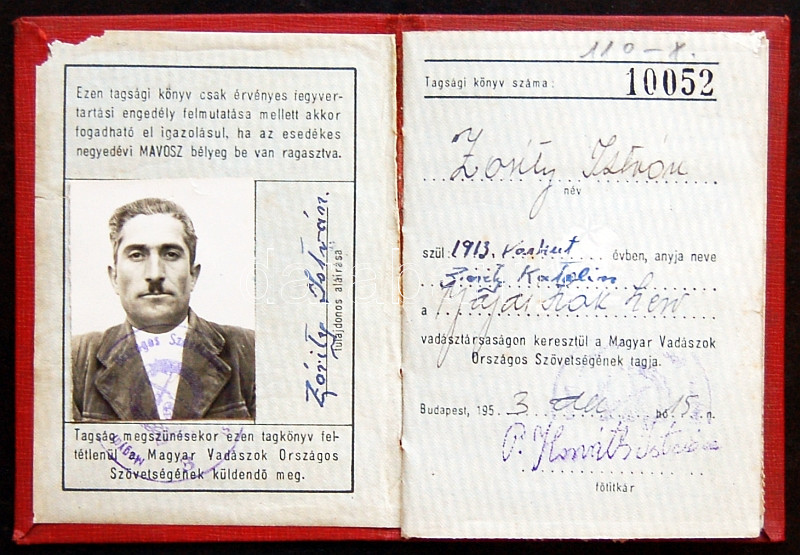 Ezen tagsági könyv csak érvényes fegyver-
tartási engedély felmutatása mellett akkor
fogadható el igazolásul, ha az esedékes
negyedévi MAVOSZ bélyeg be van ragasztva.
Zörity István.
Tulajdonos aláírása
Tagság megszünésekor ezen tagkönyv fel-
tétlenül a Magyar Vadászok Országos
Szövetségének küldendő meg.
110-X.
Tagsági könyv száma: 10052
Zority István
név
szül. 1913. évben, anyja neve
Katalin
a
vadásztársaságon keresztül a Magyar Vadászok
Országos Szövetségének tagja.
Budapest, 195 3. hó 15. n.
P. Horváth István
főtitkár